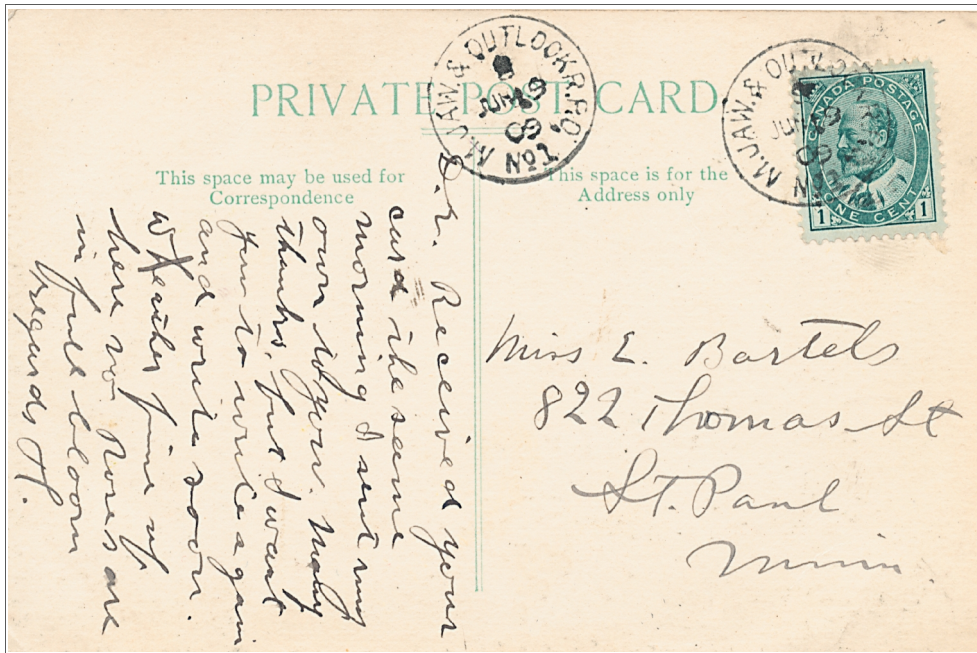 PRIVATE POST CARD
M.JAW.& OUTLOOK.R.P.O.
JUN 19
09
No1
M.JAW.& OUTLOO
JUN 19
09
N
CANADA POSTAGE
1 ONE CENT 1
This space may be used for
Correspondence
This space is for the
Address only
Received your
card the same
morning I sent my
own to you. Many
thanks, but I want
you to write again
and write soon.
Weather fine up
here no Roses are
in full bloom
regards
Miss E. Bartels
822 Thomas St
St. Paul
Minn.